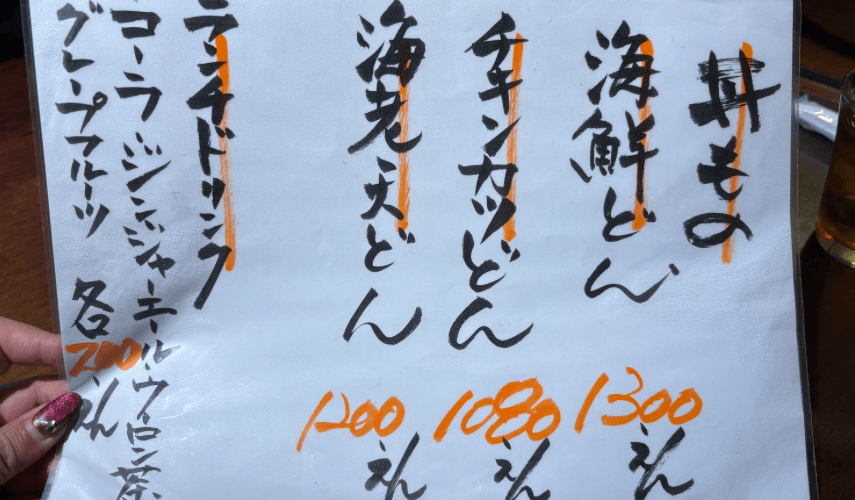 丼もの
海鮮どん
1300えん
チキンカツどん
1080えん
海老天どん
1200えん
ランチドリンク
コーラ ジンジャーエール・ウーロン茶
グレープフルーツ 各200えん